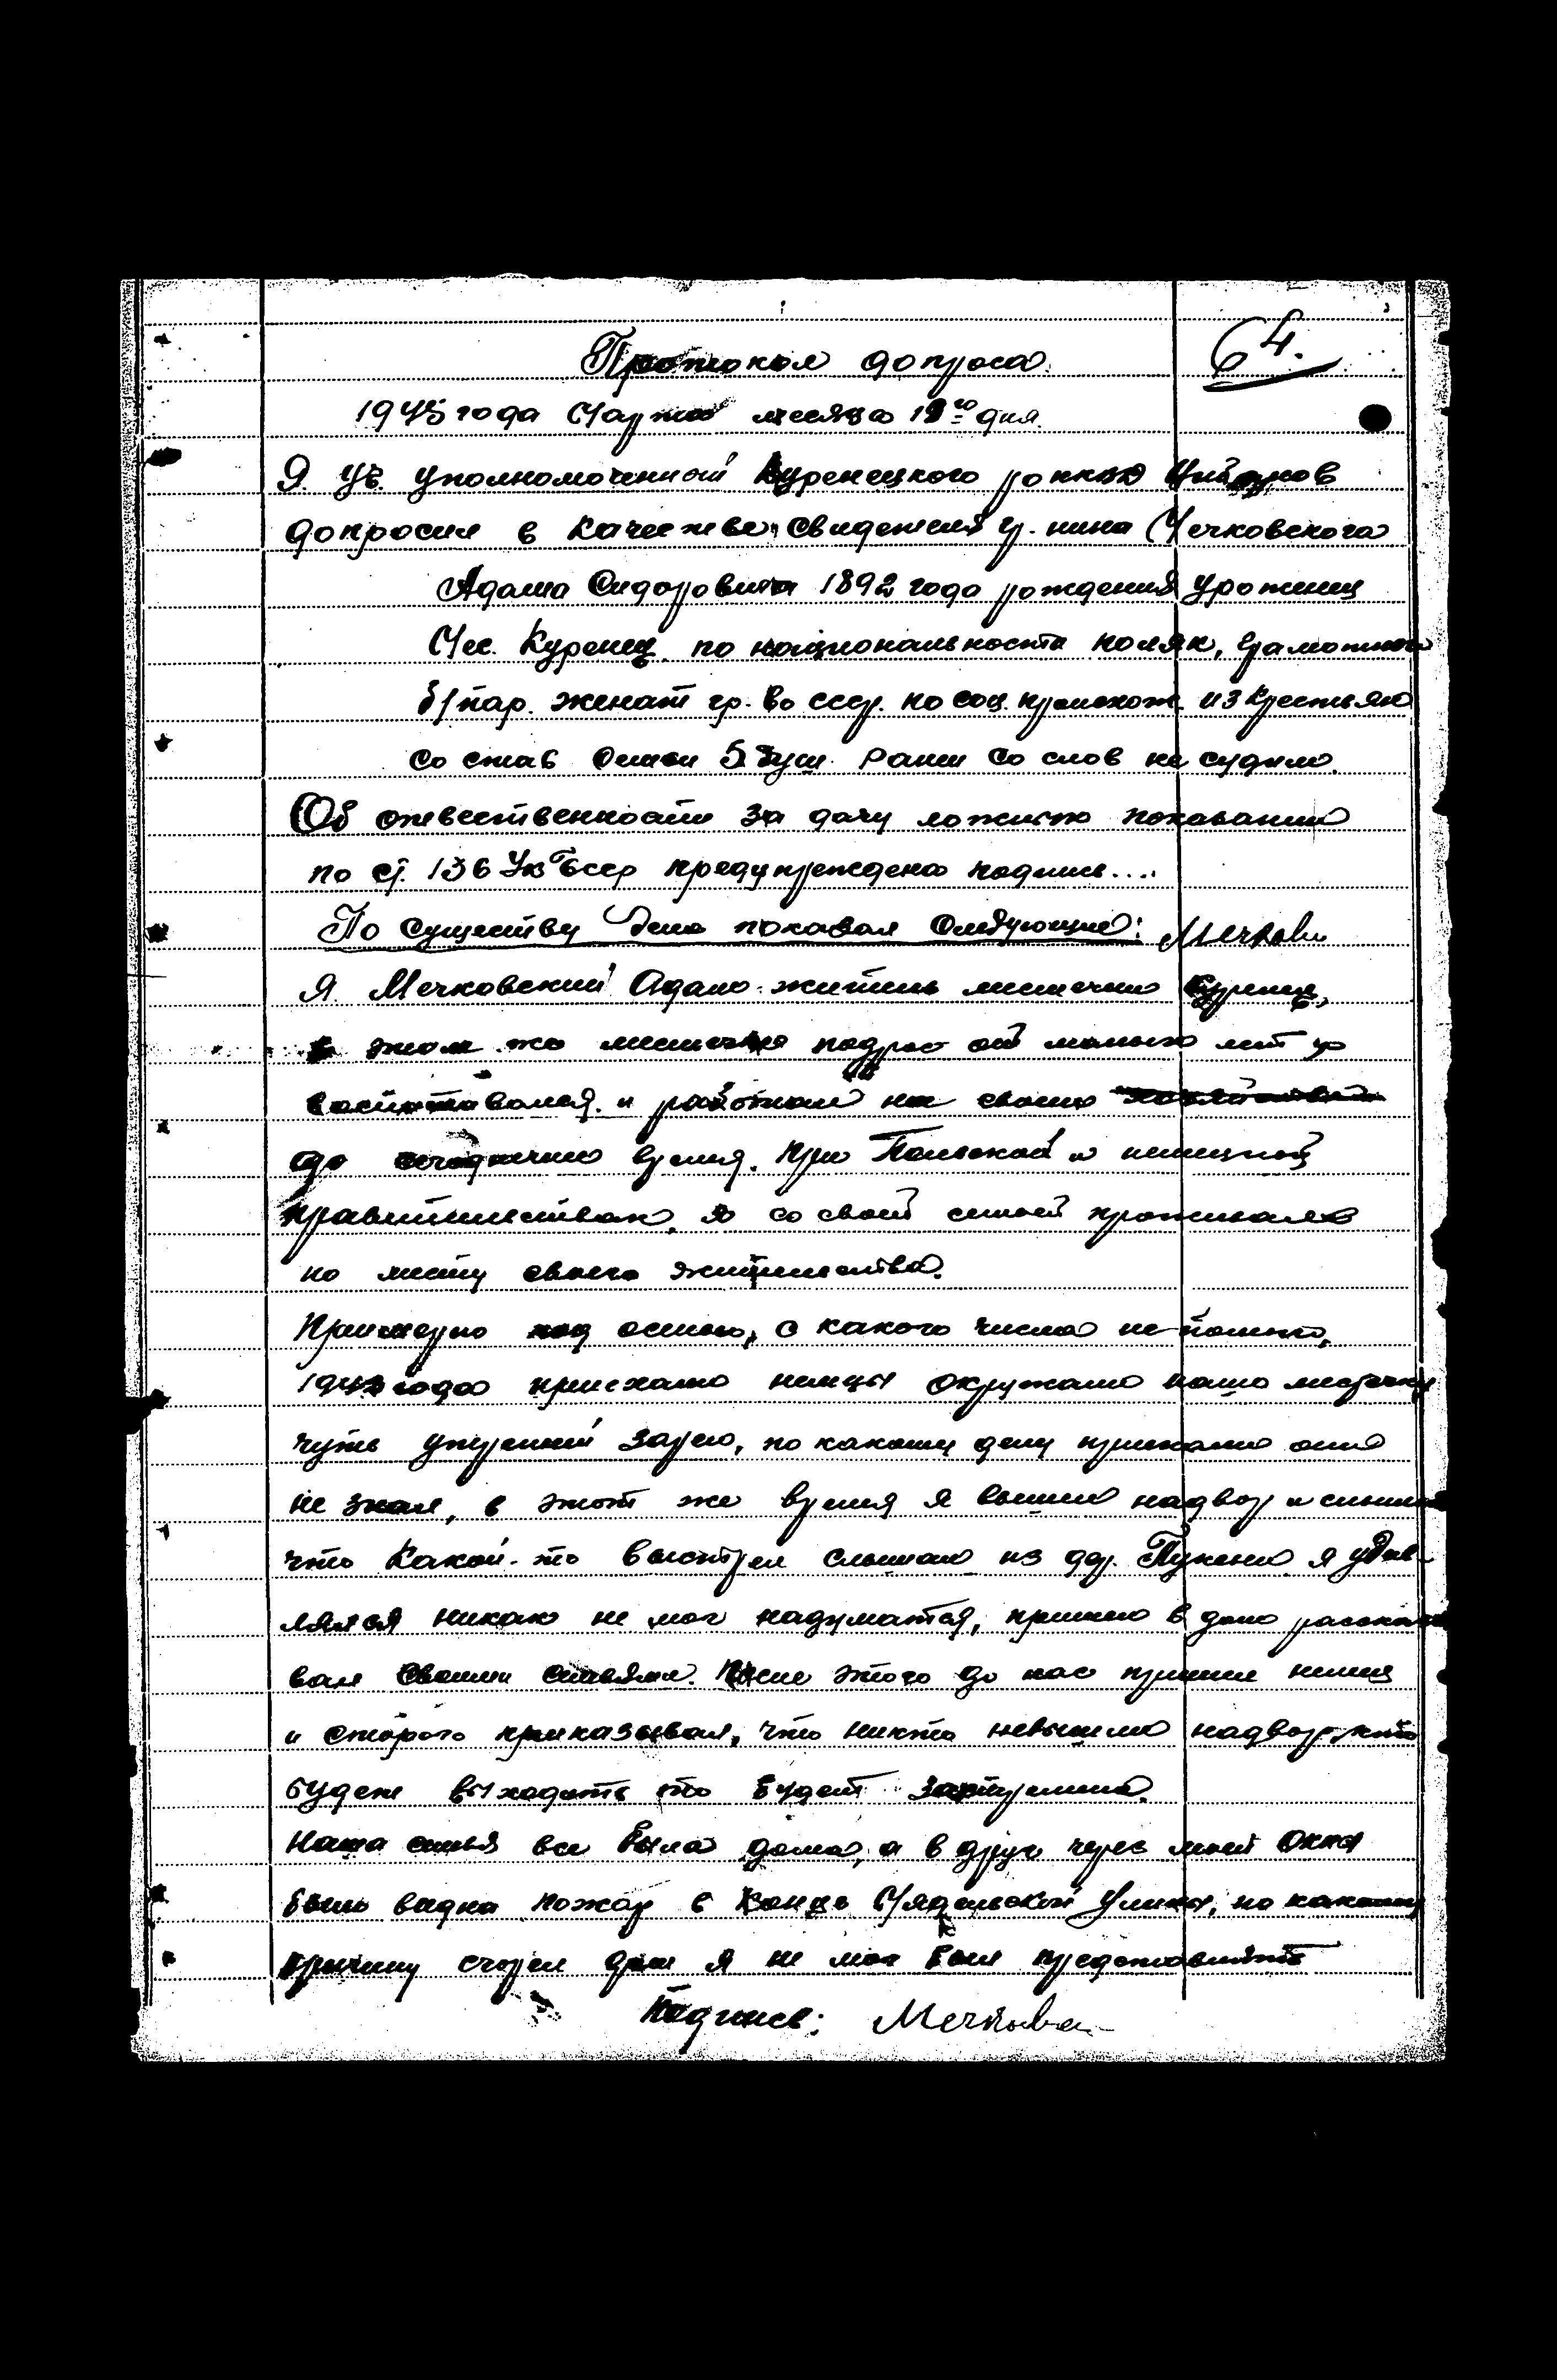 Протокол допроса
64.
1945 года Марта месяца 19го дня.
Я. Уч. Уполномоченный Куренецкого РОНКВД
допросил в качестве свидетеля гр. нина Мечковского
Адама Сидоровича 1892 года рождения уроженец
Мес. Куренец. по национальности поляк, грамотный
б/пар. женат гр-во ссср. по соц. происхож. из крестьян
состав семьи 5 душ. ранее со слов не судим.
Об ответственности за дачу ложных показаний
по ст. 136 Ук Бсср предупрежден подпись....
По существу дела показал следующие: Мечкови
Я. Мечковский Адам. житель местечки Куренец,
в этом же местечке подрос от малых лет
воспитовался. и работал на своем
до сегоднешне время. При Польской и немецкой
правительствах, я со своей семьей проживал
по месту своего жительства.
Примерно под осень, с какого числа не помню,
1942 года приехали немцы окружали нашо местечку
чуть утренней зарею, по какому делу приехали они
не знал, в этот же время я вышел надвор и слышал
что какой-то выстрел слышал из дер. я удив-
лялся никак не мог надуматся, пришел в дом расска
вал своими семьями. После этого до нас пришел немец
и сторого приказывал, что никто невышел надвор, кто
будет выходить то будет застрелена.
Наша семья все была дома, а вдруг через моей окна
было видна пожар в конце Мядельской улицы, по какому
причину сгорел дом я не мог был представить
Подпись: Мечкови